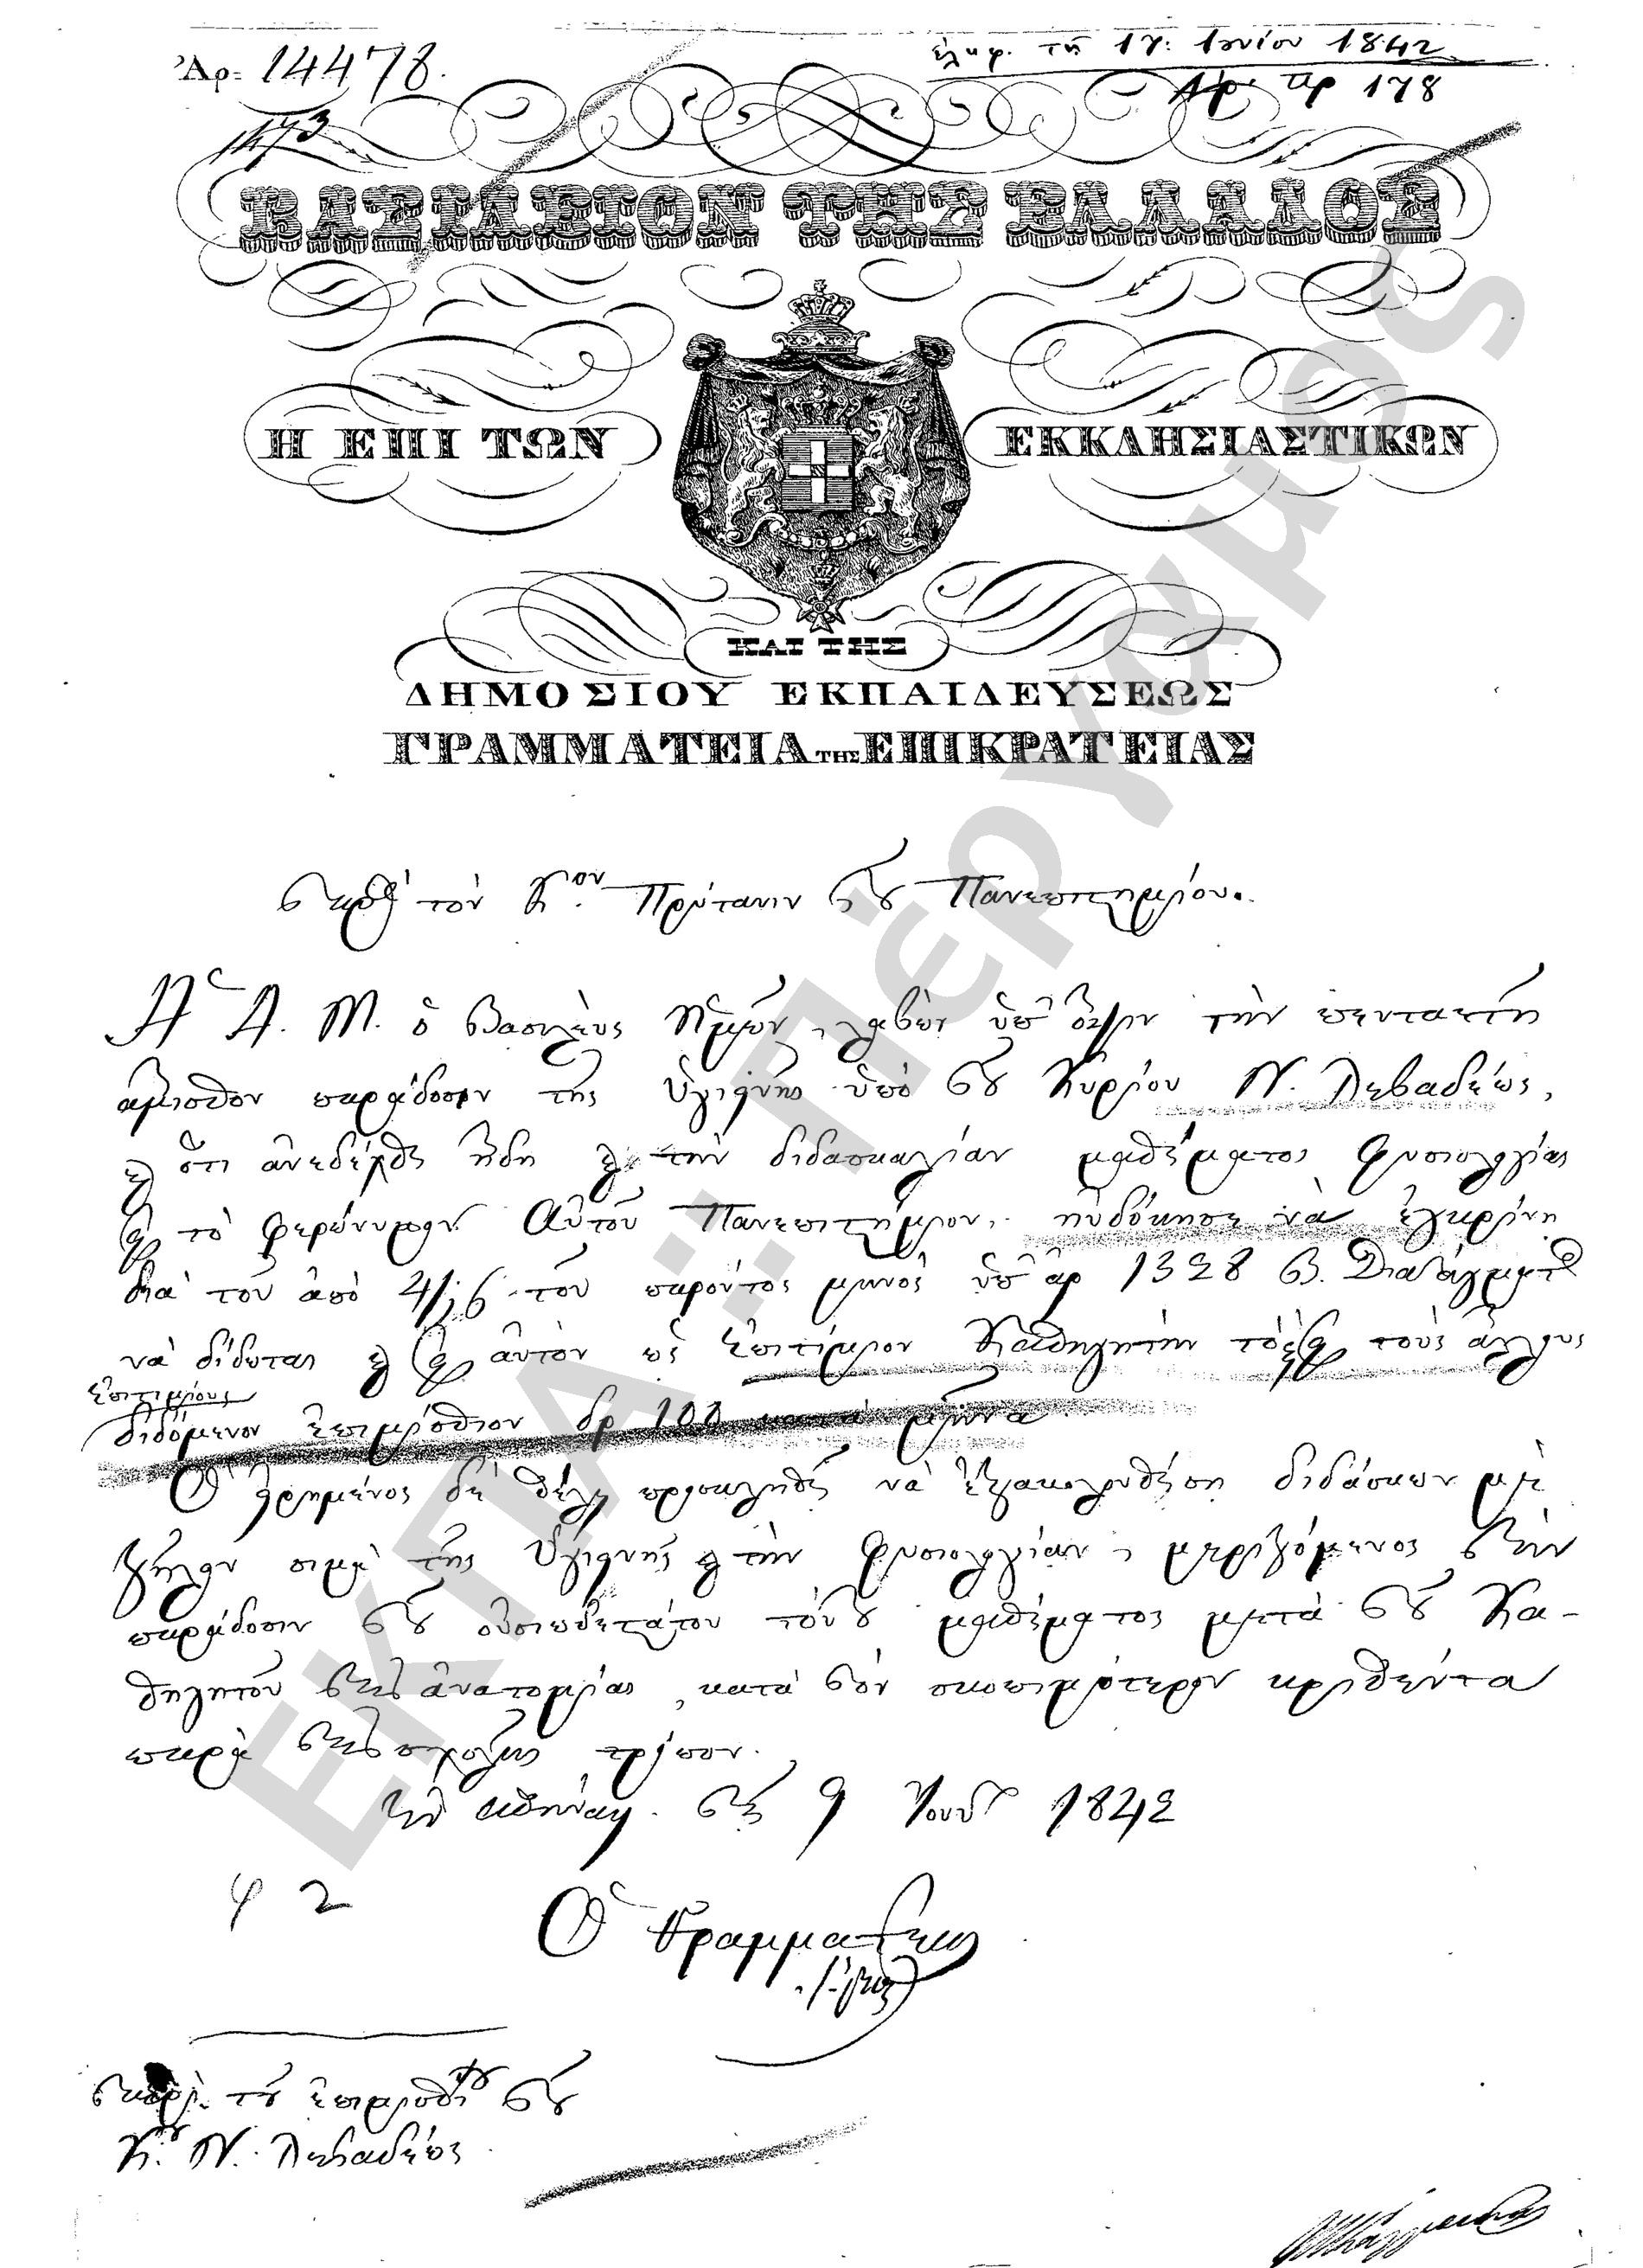 Ἀρ: 14478.
ἐλήφ. τῇ 17: Ἰουνίου 1842
Ἀρ. πρ 178
1473
ΒΑΣΙΛΕΙΟΝ ΤΗΣ ΕΛΛΑΔΟΣ
Η ΕΠΙ ΤΩΝ ΕΚΚΛΗΣΙΑΣΤΙΚΩΝ
ΚΑΙ ΤΗΣ
ΔΗΜΟΣΙΟΥ ΕΚΠΑΙΔΕΥΣΕΩΣ
ΓΡΑΜΜΑΤΕΙΑ ΤΗΣ ΕΠΙΚΡΑΤΕΙΑΣ
τὸν Κον Πρύτανιν τοῦ Πανεπιστημίου.
Ἡ Α. Μ. ὁ Βασιλεὺς ἡμῶν, λαβὼν ὑπ' ὄψιν τὴν πενταετῆ
ἄμισθον παράδοσιν τῆς Ὑγιεινῆς ὑπὸ τοῦ Κυρίου Ν. Λεβαδέως,
καὶ ὅτι ἀνεδέχθη ἤδη καὶ τὴν διδασκαλίαν μαθήματος Φυσιολογίας
εἰς τὸ φερώνυμον Αὑτοῦ Πανεπιστήμιον, ηὐδόκησε νὰ ἐγκρίνῃ
διὰ τοῦ ἀπὸ 4/16 τοῦ παρόντος μηνὸς ὑπ' ἀρ 1328 Β. Διατάγματος
νὰ δίδεται καὶ εἰς αὐτὸν ὡς ἐπιτίμιον Καθηγητὴν τὸ εἰς τοὺς ἄλλους
ἐπιτιμίους
διδόμενον ἐπιμίσθιον δρ 100 κατὰ μῆνα.
Ὁ εἰρημένος δὲ θέλει προσκληθῆ νὰ ἐξακολουθήσῃ διδάσκων μὲ
ζῆλον σιμὰ τῆς Ὑγιεινῆς καὶ τὴν Φυσιολογίαν, μεριζόμενος τὴν
παράδοσιν τοῦ οὐσιωδεστάτου τούτου μαθήματος μετὰ τοῦ Κα-
θηγητοῦ τῆς ἀνατομίας, κατὰ τὸν σκοπιμώτερον κριθέντα
παρὰ τῆς σχολῆς τρόπον.
Ἐν Ἀθήναις. τῇ 9 Ἰουν 1842
φ 2
Ὁ Γραμματεὺς
περὶ τοῦ ἐπιμισθίου τοῦ
Κ. Ν. Λεβαδέως
ΕΚΠΑ:: Πέργαμος